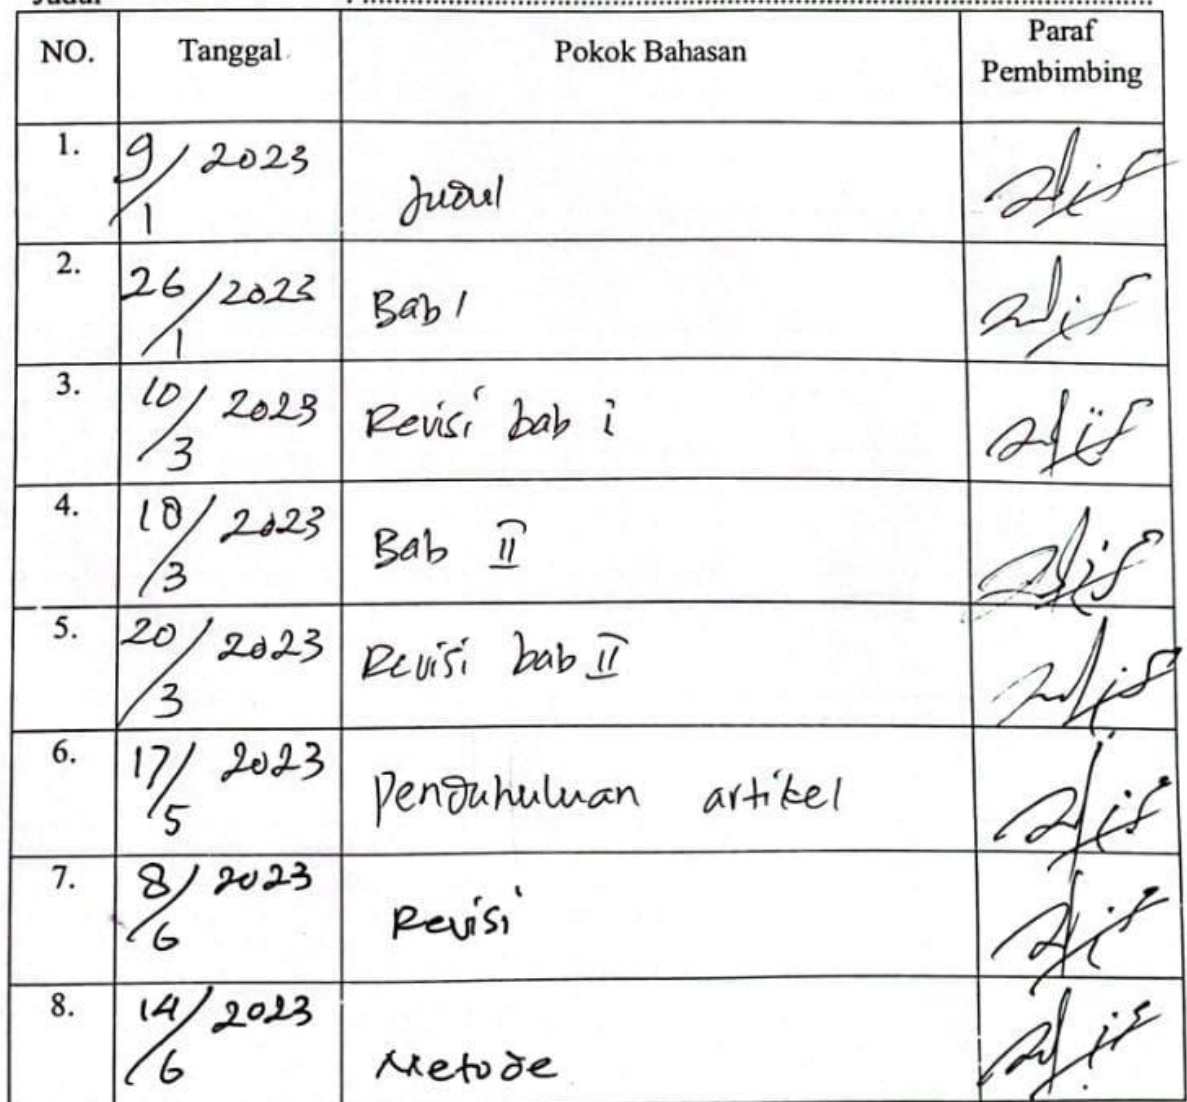 NO. Tanggal Pokok Bahasan Paraf Pembimbing
1. 9/1 2023 Judul
2. 26/1 2023 Bab I
3. 10/3 2023 Revisi bab i
4. 18/3 2023 Bab II
5. 20/3 2023 Revisi bab II
6. 17/5 2023 Penduhuluan artikel
7. 8/6 2023 Revisi
8. 14/6 2023 Metode